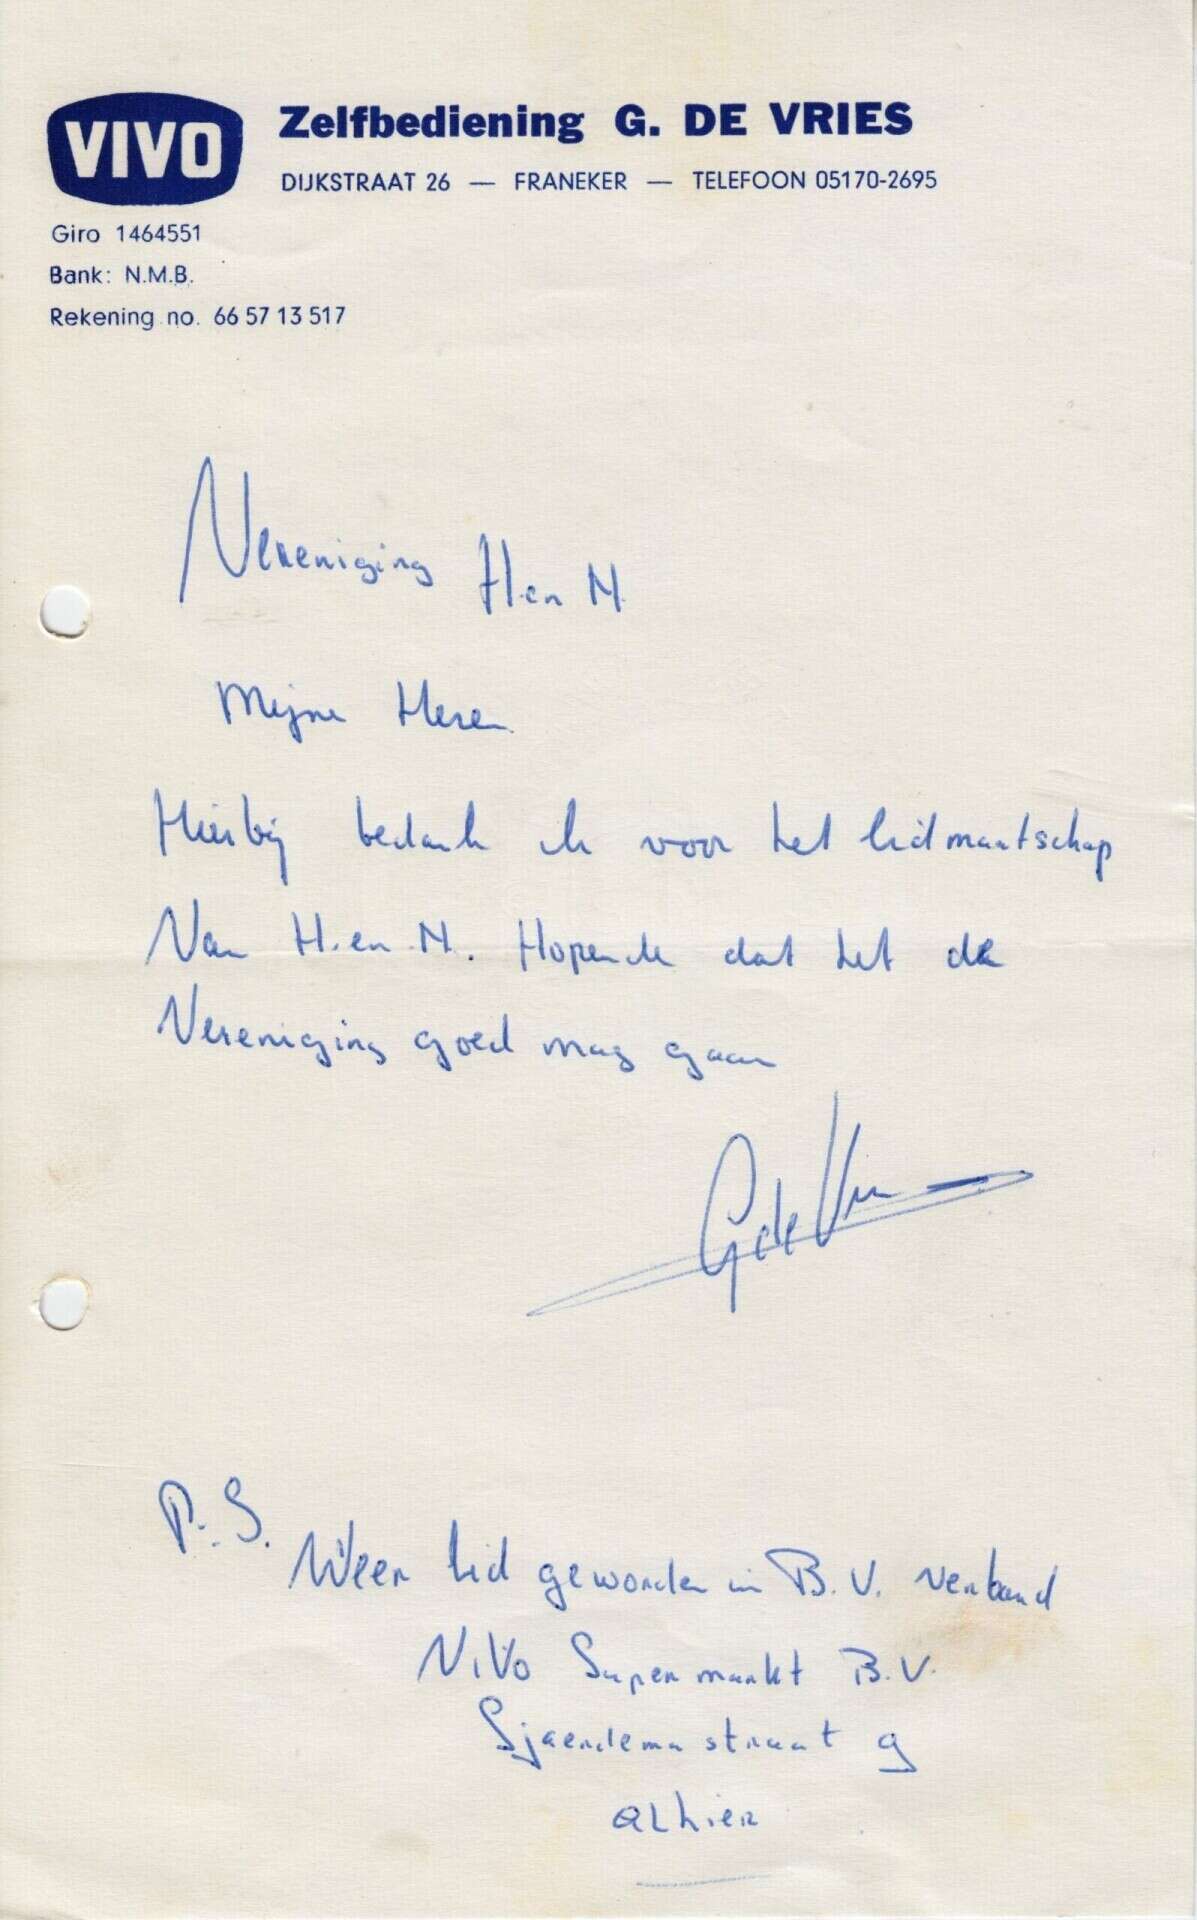 VIVO
Zelfbediening G. DE VRIES
DIJKSTRAAT 26 — FRANEKER — TELEFOON 05170-2695
Giro 1464551
Bank: N.M.B.
Rekening no. 66 57 13 517
Vereniging H en M
Mijne Heren
Hierbij bedank ik voor het lidmaatschap
Van H. en M. Hopende dat het de
Vereniging goed mag gaan
G de Vries
P.S.
Weer lid geworden in B.V. verband
ViVo Supermarkt B.V.
Sjaerdema straat 9
alhier